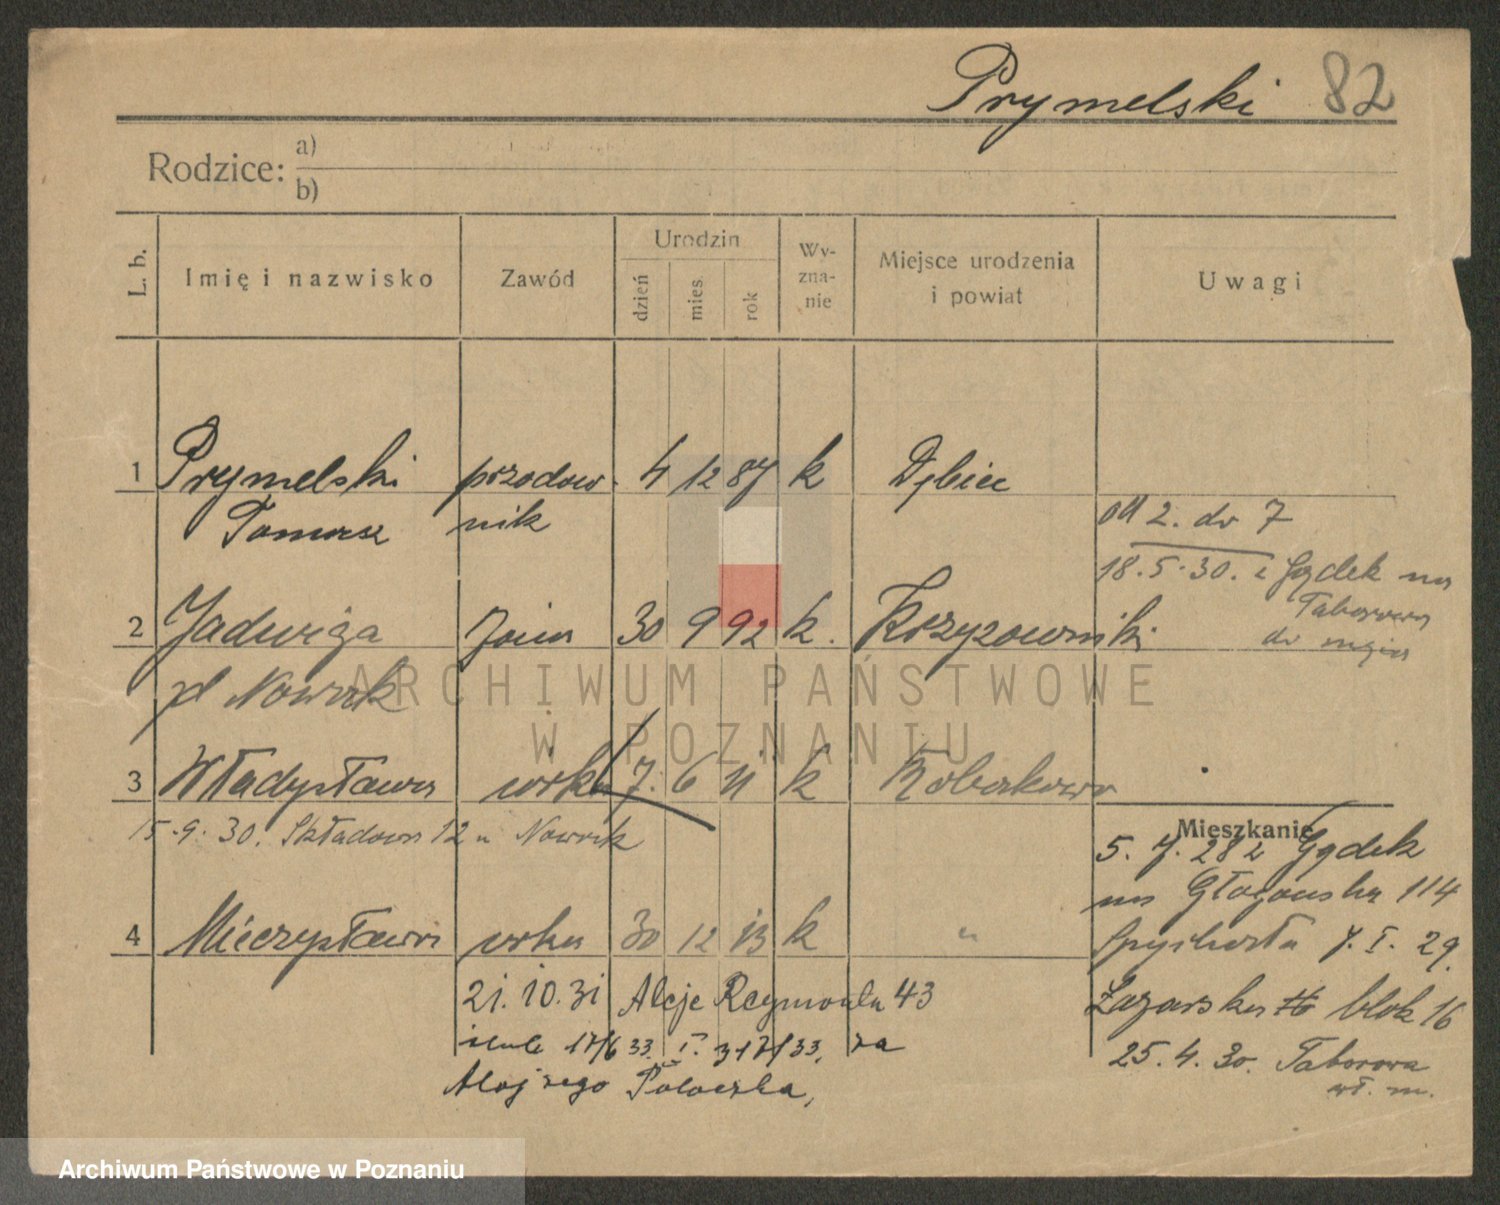 Prymelski 82
Rodzice: a)
b)
L. b.
Imię i nazwisko
Zawód
Urodzin
dzień
mies.
rok
Wy-
zna-
nie
Miejsce urodzenia
i powiat
Uwagi
1 Prymelski przodow- 4 12 87 k Dębiec
Tomasz nik
od 2. do 7
18.5.30. z Gądek na
Taborowa
do
2 Jadwiga żona 30 9 92 k. Krzyżowniki
zd Nowak
3 Władysława córka 7. 6 11 k
15.9.30. Składowa 12 u Nowak
Mieszkanie
5. 7. 28 z Gądek
na Głogowska 114
4 Mieczysława córka 30 12 13 k "
7. I. 29.
Łazarska blok 16
21. 10. 31 Aleje Reymonta 43
17/6 33. I. 33. za
25. 4. 30. Taborowa
wł. m.
Alojzego
ARCHIWUM PAŃSTWOWE
W POZNANIU
Archiwum Państwowe w Poznaniu